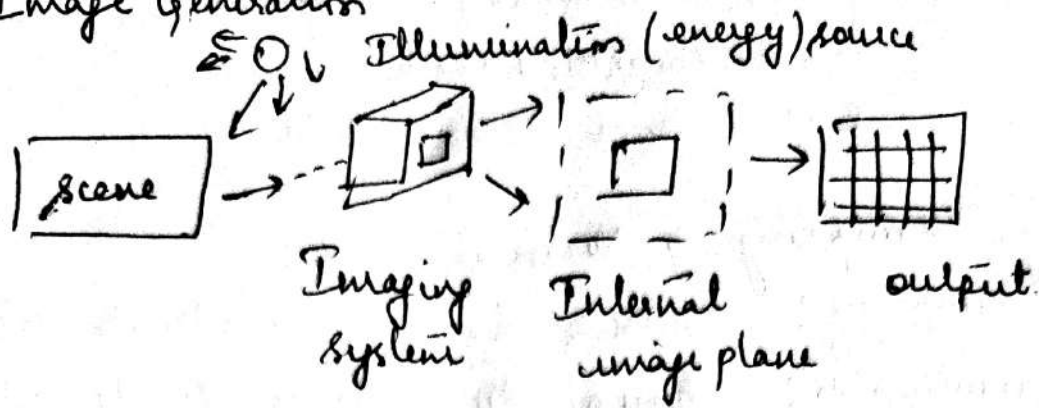 Image Generation
Illumination (energy) source
scene
Imaging
system
Internal
image plane
output